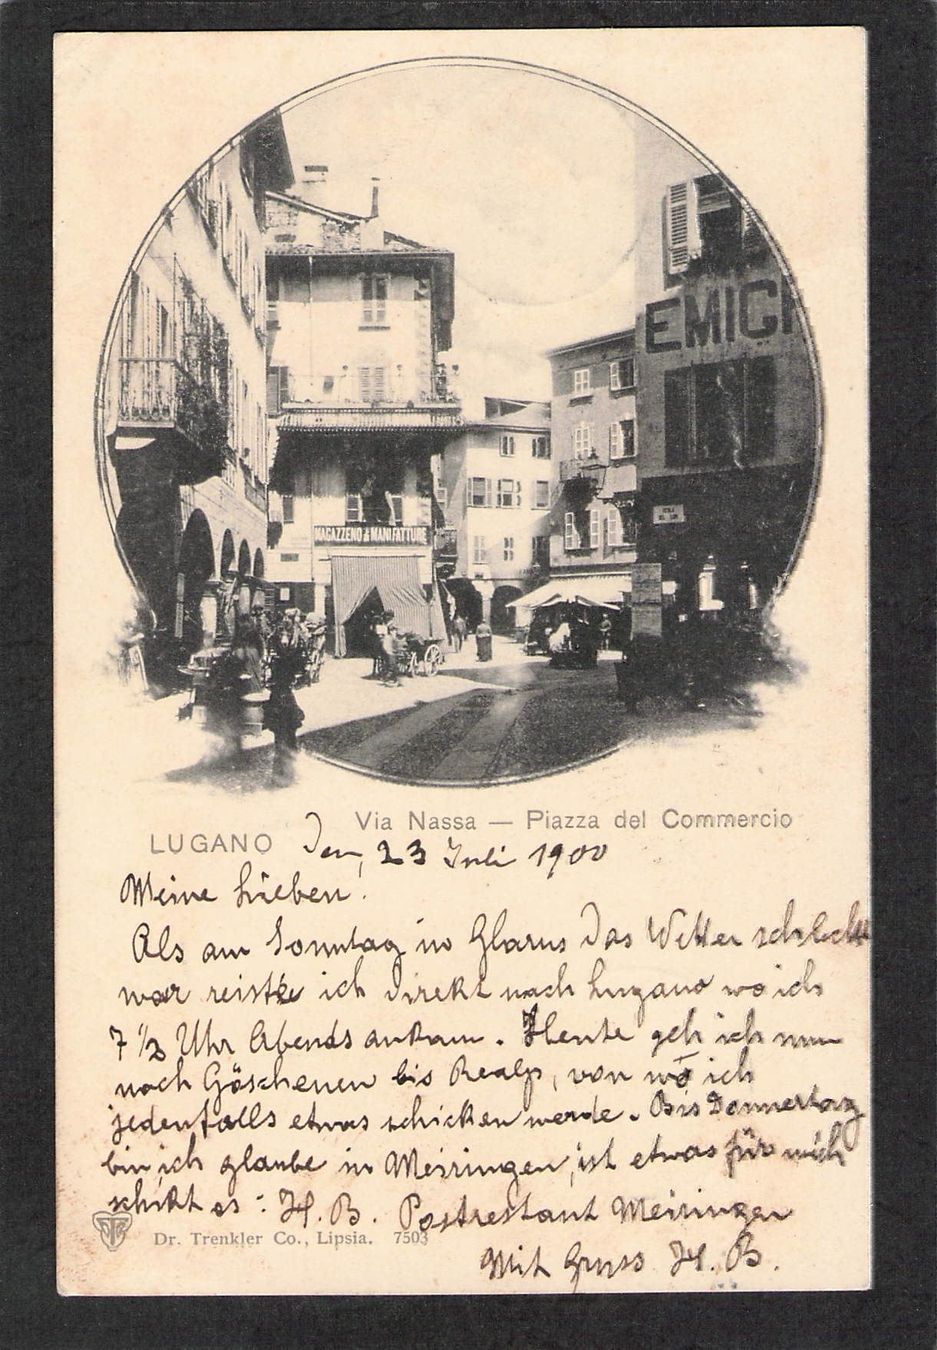 EMIG
MAGAZZENO di MANIFATTURE
Via Nassa — Piazza del Commercio
LUGANO
Den, 23 Juli 1900
Meine Lieben!
Als am Sonntag in Glarus das Wetter schlecht
war reiste ich direkt nach Lugano wo ich
7 1/2 Uhr Abends ankam. Heute geh ich nun
nach Göschenen bis Realp, von wo ich
jedenfalls etwas schicken werde. Bis Donnerstag
bin ich glaube in Meiringen, ist etwas für mich
schikt es: H. B. Postrestant Meiringen
Mit Gruss H. B.
Dr. Trenkler Co., Lipsia. 7503